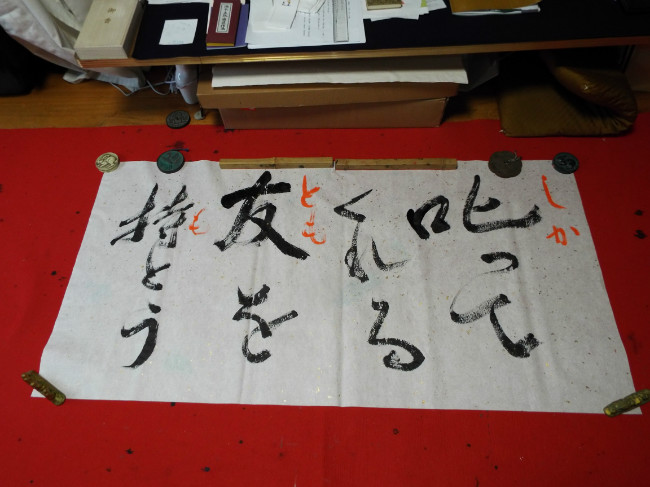 叱って
しか
くれる
友を
とも
持とう
も